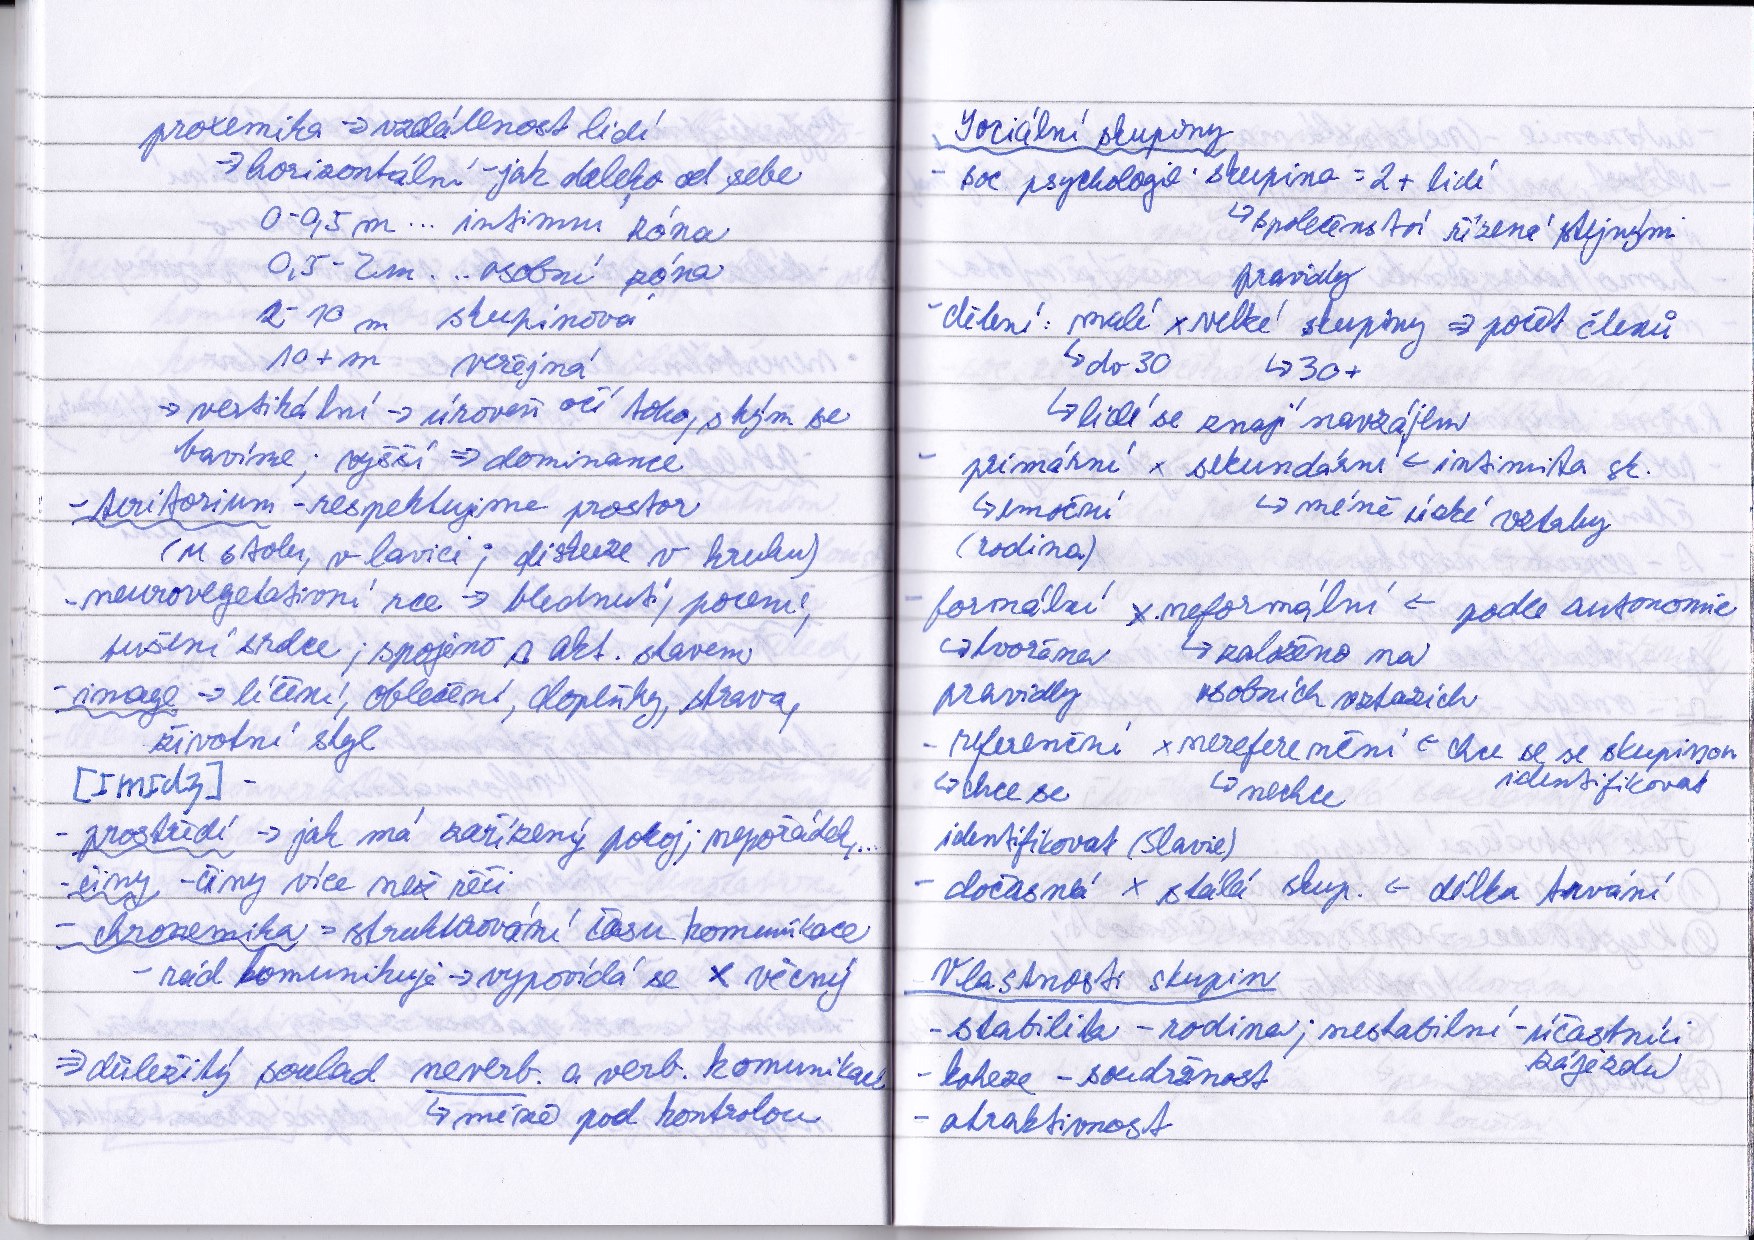 proxemika → vzdálenost lidí
→ horizontální - jak daleko od sebe
0-0,5 m ... intimní zóna
0,5-2m ... osobní zóna
2-10 m skupinová
10+m veřejná
→ vertikální → úroveň očí toho, s kým se
bavíme; vyšší ⇒ dominance
- teritorium - respektujeme prostor
(u stolu, v lavici; diskuze v kruhu)
- neurovegetativní rce → blednutí, pocení,
bušení srdce; spojeno s akt. stavem
- image → líčení, oblečení, doplňky, strava,
životní styl
[ɪmɪdʒ] -
- prostředí → jak má zařízený pokoj; nepořádek,...
- činy - činy více než řeči
- chronemika = strukturování času komunikace
- rád komunikuje → vypovídá se × věčný
⇒ důležitý soulad neverb. a verb. komunikace
↳ méně pod kontrolou
Sociální skupiny
- soc psychologie: skupina = 2+ lidí
↳ společenství řízené stejnými
pravidly
- dělení: malé × velké skupiny ⇒ počet členů
↳ do 30 ↳ 30+
↳ lidé se znají navzájem
- primární × sekundární ← intimita sk.
↳ emoční ↳ méně úzké vztahy
(rodina)
- formální × neformální ← podle autonomie
↳ tvořena ↳ založeno na
pravidly osobních vztazích
- referenční × nereferenční ← chce se se skupinou
identifikovat
↳ chce se ↳ nechce
identifikovat (Slavie)
- dočasná × stálá skup. ← délka trvání
Vlastnosti skupin
- stabilita - rodina; nestabilní - účastníci
zájezdu
- koheze - soudržnost
- atraktivnost